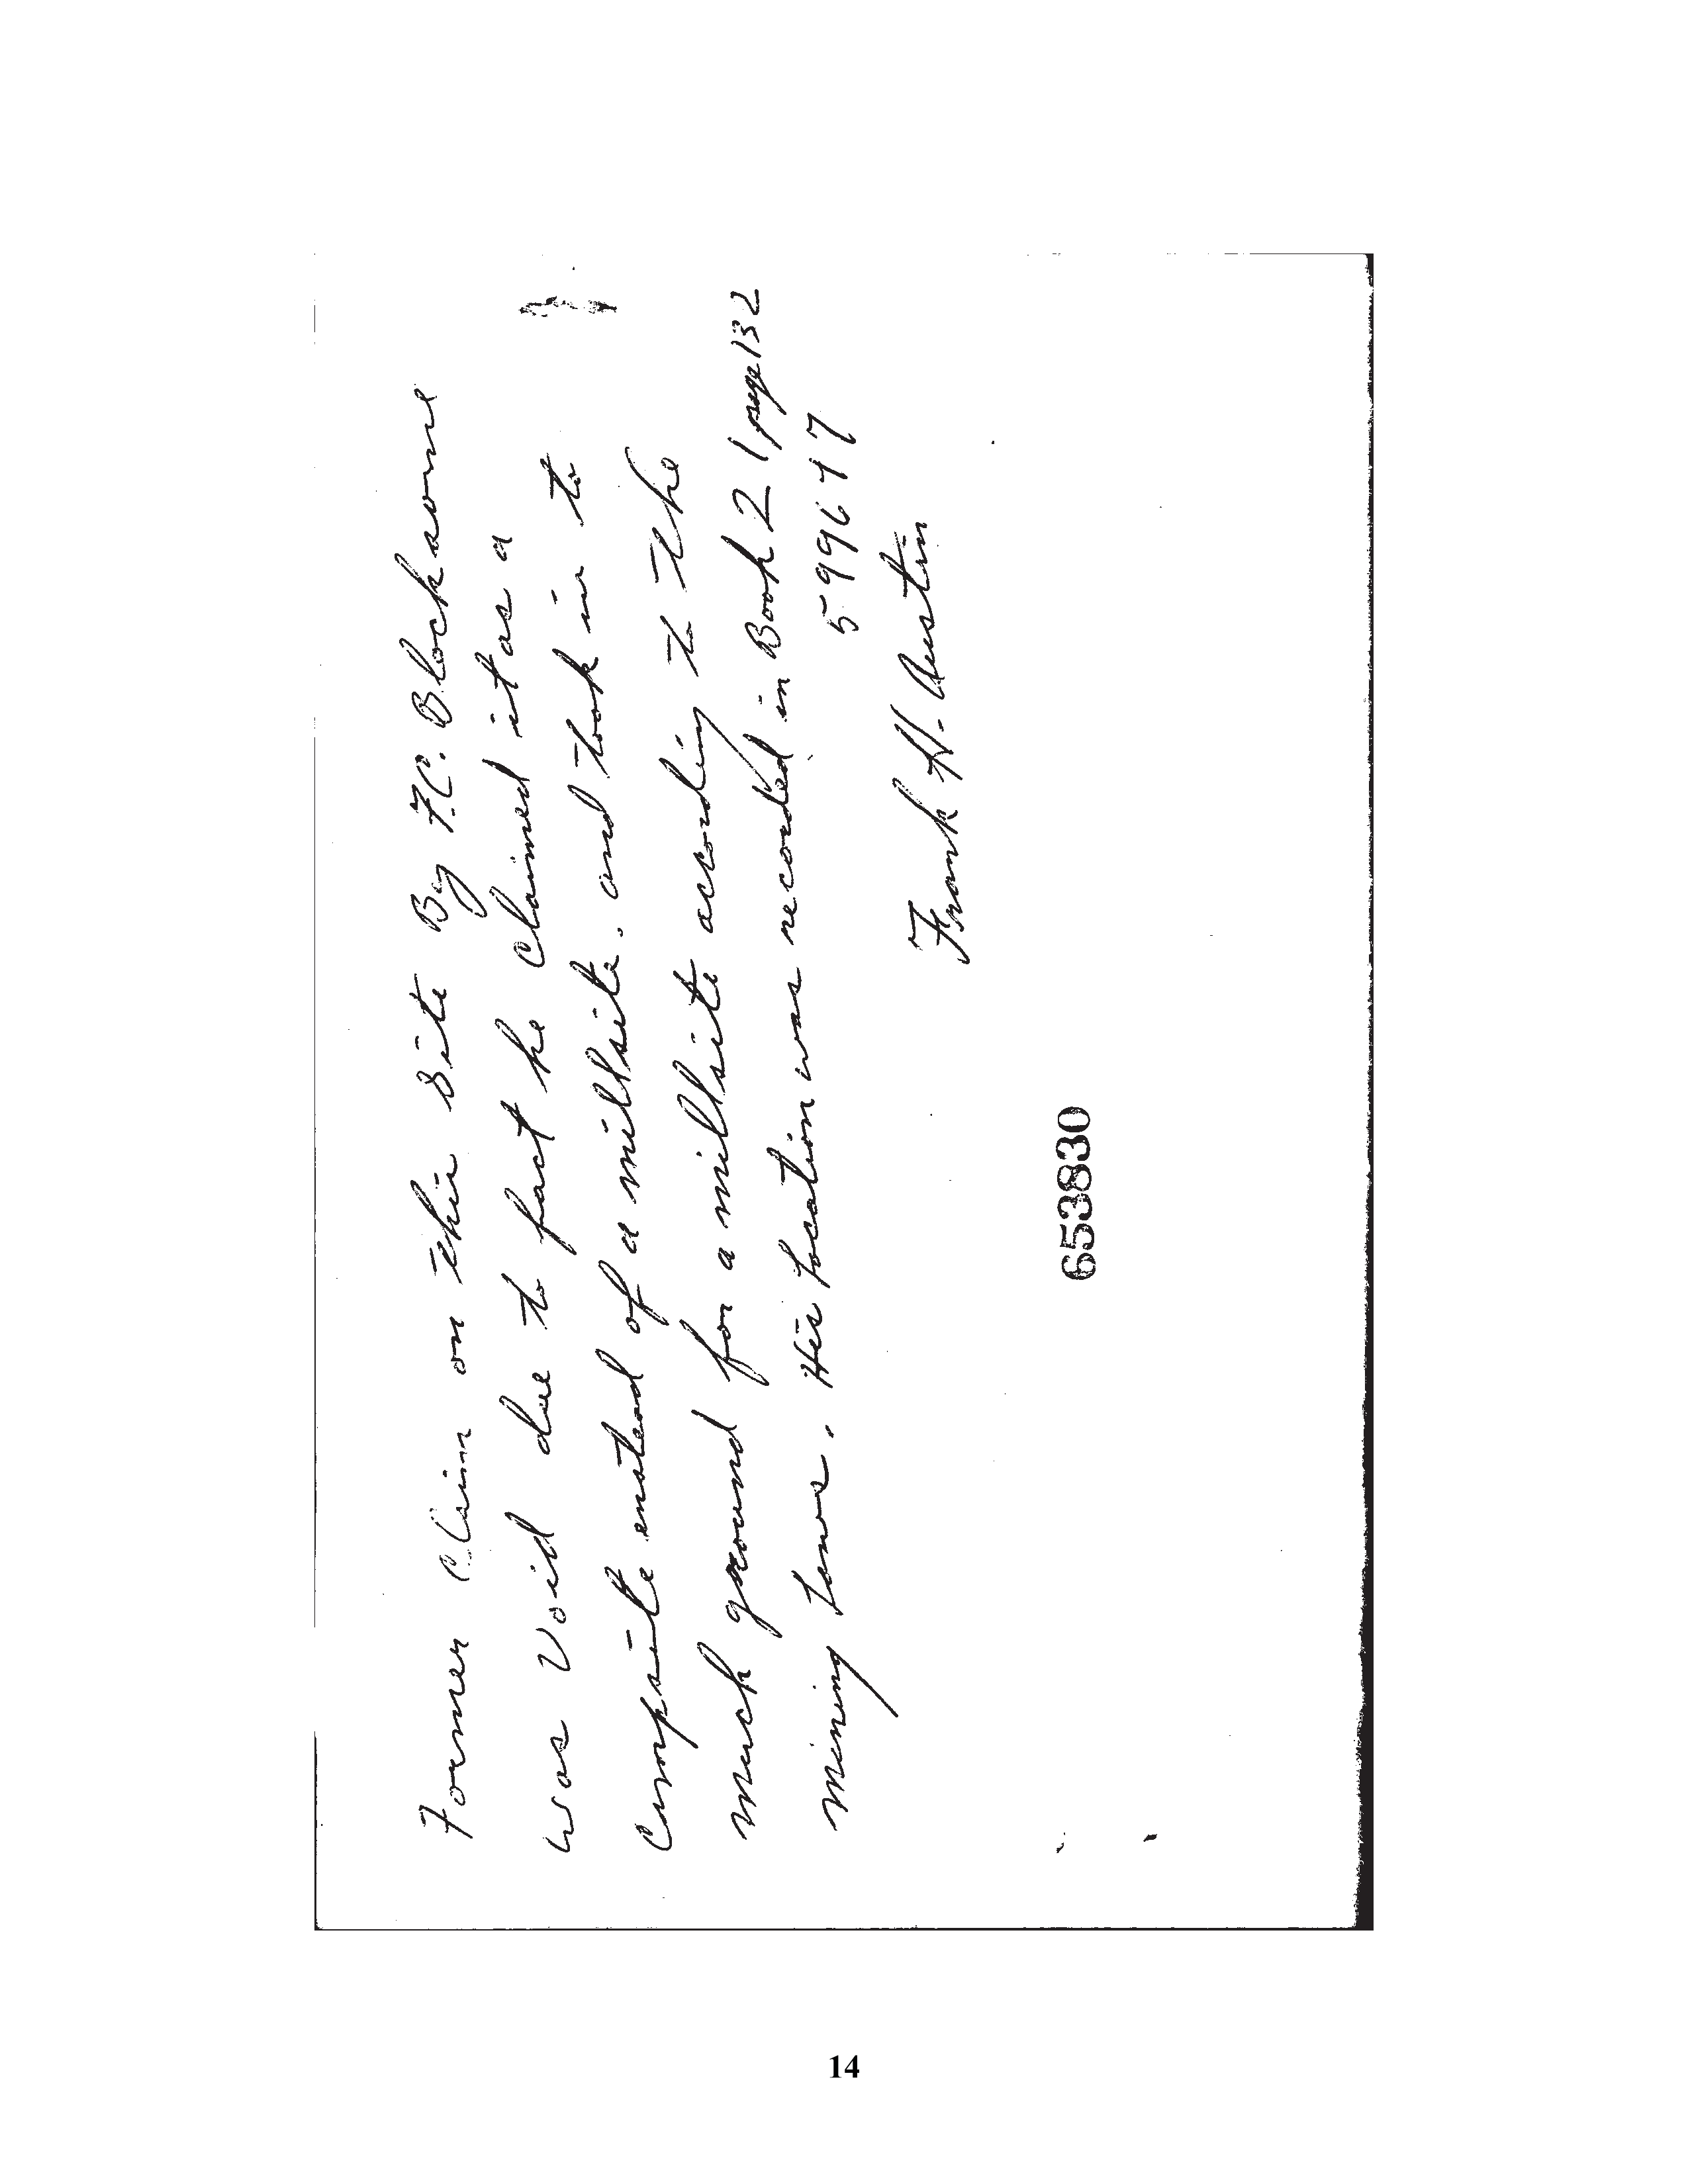 Former Claim on this site By F.C. Blocksome
was Void due to fact he Claimed it as a
Campsite enstead of a millsite. and took in to
much ground for a millsite according to the
mining Laws. His Location was recorded in Book 21 page 132
Frank H. Austin
653830
14